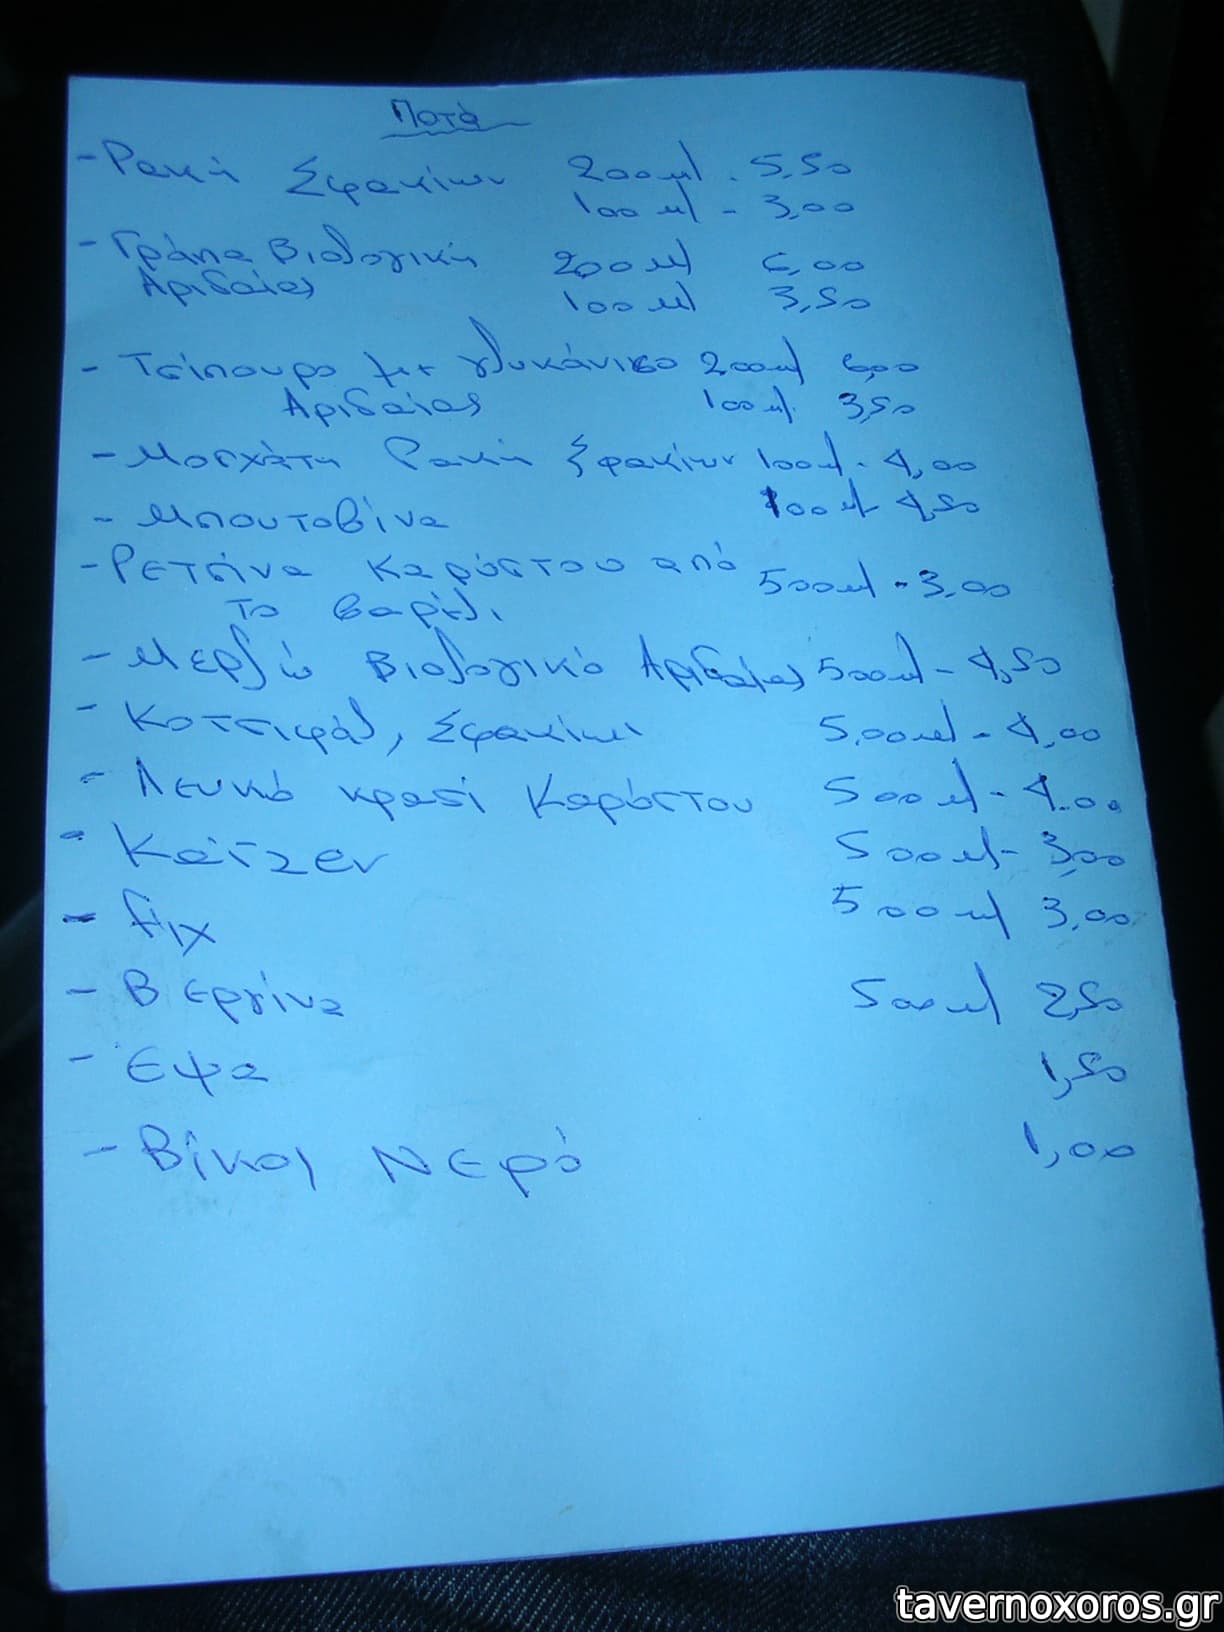 Ποτά
- Ρακή Σφακίων 200ml - 5,50
100ml - 3,00
- Γράπα Βιολογική 200ml 6,00
Αριδαίας 100ml 3,50
- Τσίπουρο με γλυκάνισο 200ml 6,00
Αριδαίας 100ml 3,50
- Μοσχάτη Ρακή Σφακίων 100ml - 4,00
- Μπουτοβίνα 100ml 4,50
- Ρετσίνα Καρύστου από 500ml - 3,00
το βαρέλι
- Μερλώ Βιολογικό Αριδαίας 500ml - 4,50
- Κοτσιφάλι, Σφακίων 500ml - 4,00
- Λευκό κρασί Καρύστου 500ml - 4.00
- Κάιζεν 500ml - 3,00
- Fix 500ml 3,00
- Βεργίνα 500ml 2,50
- Εψα 1,50
- Βίκος Νερό 1,00
tavernoxoros.gr